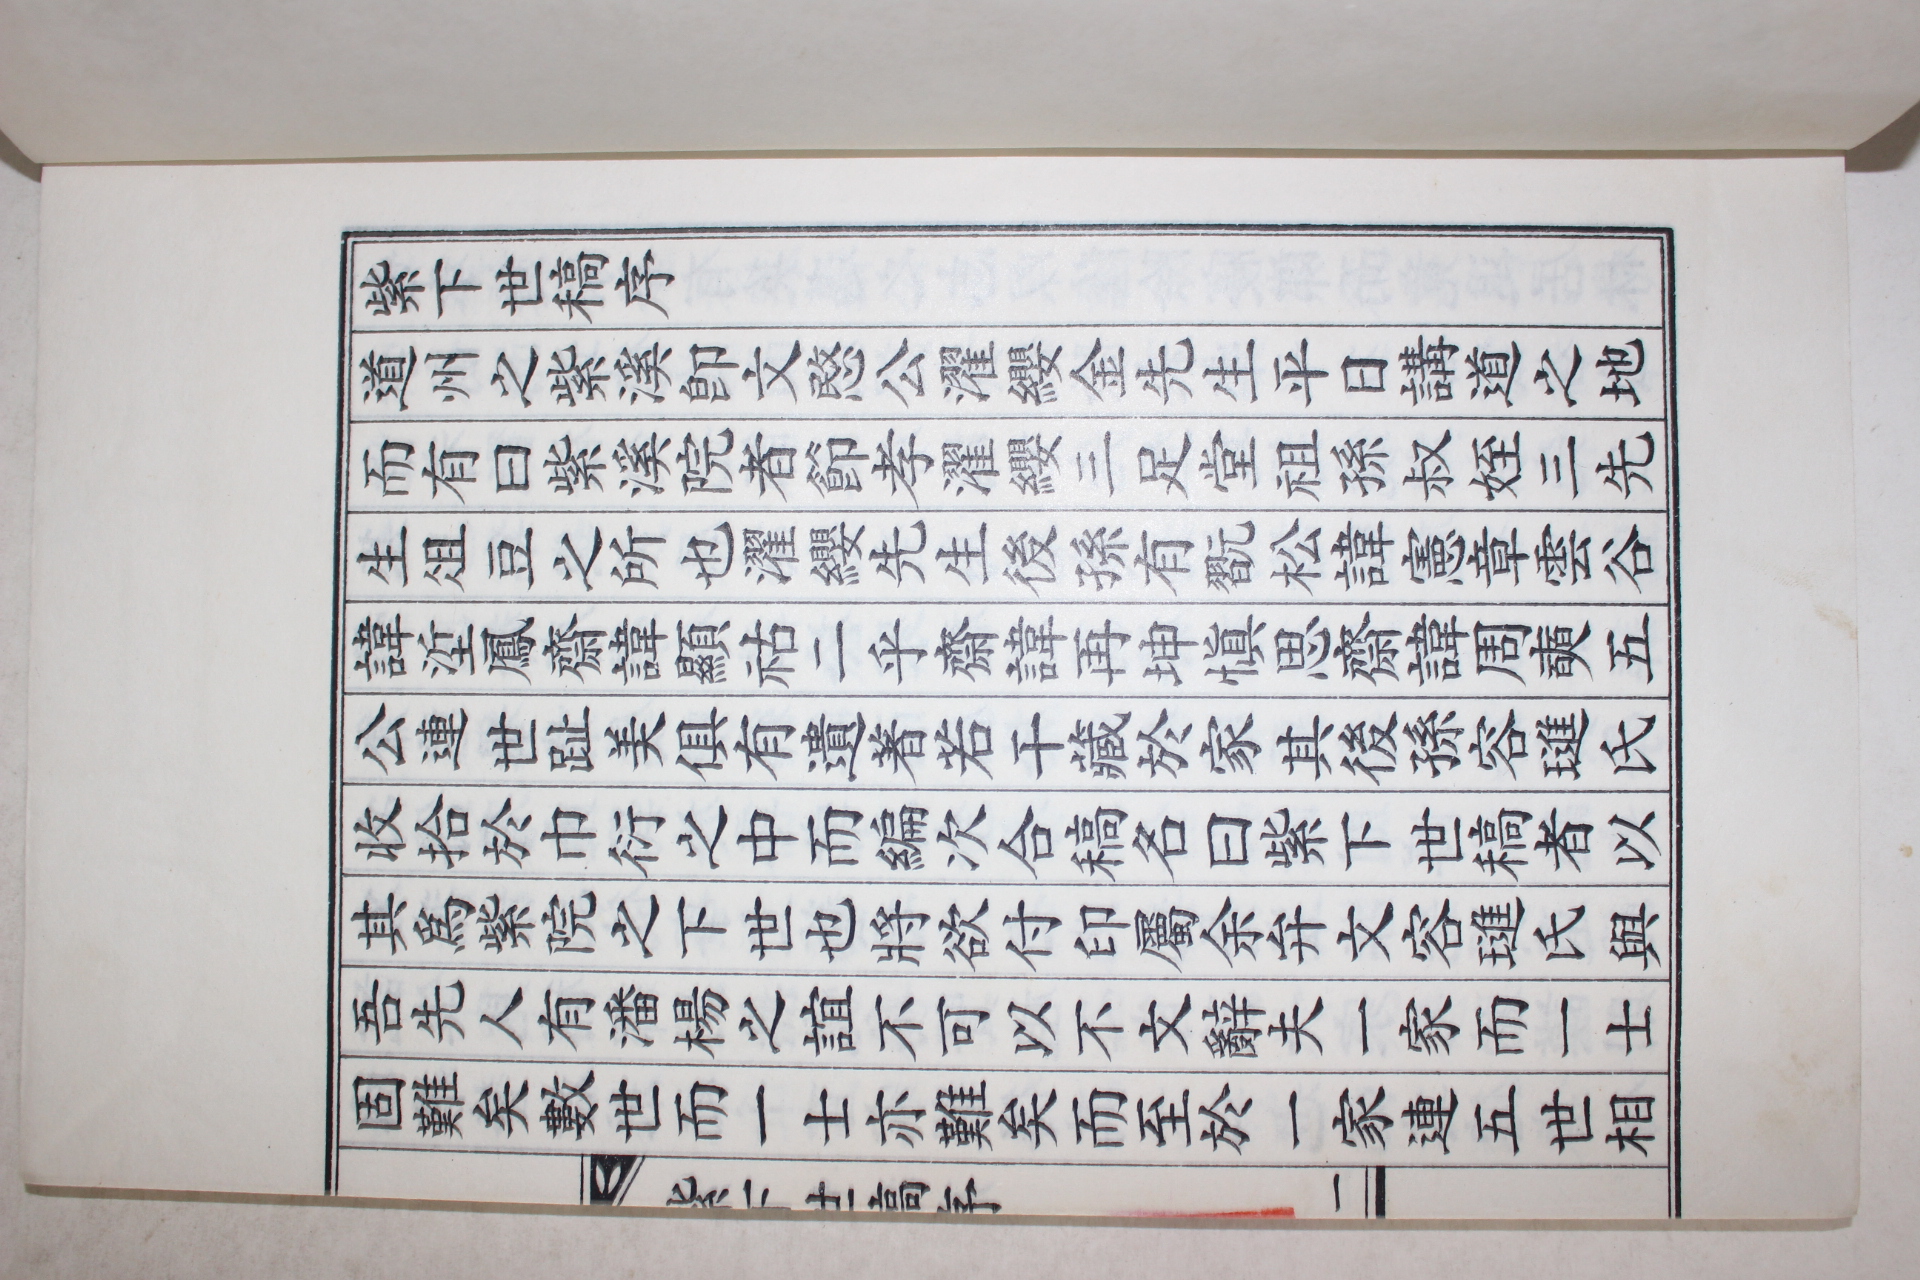 紫下世稿序
道州之紫溪卽文愍公濯纓金先生平日講道之地
而有曰紫溪院者節孝濯纓三足堂祖孫叔姪三先
生俎豆之所也濯纓先生後孫有翫松諱憲章雲谷
諱垽鳳齋諱顯祜二乎齋諱再坤愼思齋諱周奭五
公連世趾美俱有遺著若干藏於家其後孫容璡氏
收拾於巾衍之中而編次合稿名曰紫下世稿者以
其爲紫院之下世也將欲付印屬余弁文容璡氏與
吾先人有潘楊之誼不可以不文辭夫一家而一士
固難矣數世而一士亦難矣而至於一家連五世相
紫下世稿序
一